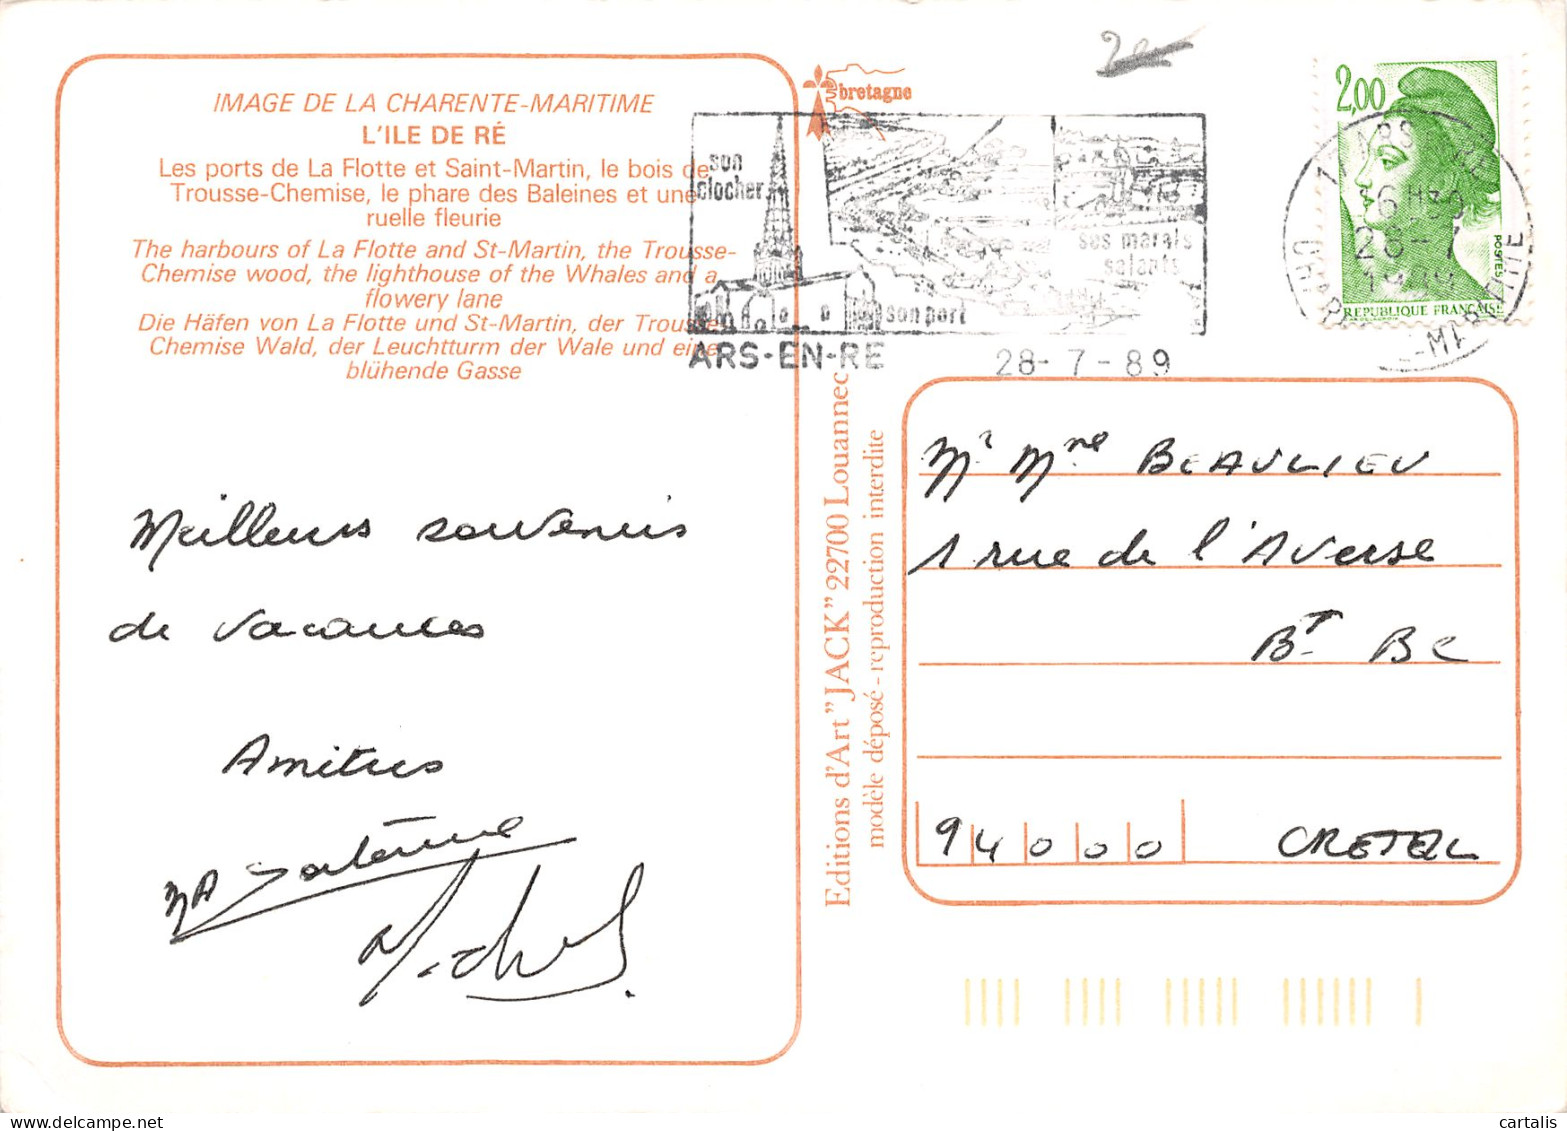 IMAGE DE LA CHARENTE-MARITIME
L'ILE DE RÉ
Les ports de La Flotte et Saint-Martin, le bois de
Trousse-Chemise, le phare des Baleines et une
ruelle fleurie
The harbours of La Flotte and St-Martin, the Trousse-
Chemise wood, the lighthouse of the Whales and a
flowery lane
Die Häfen von La Flotte und St-Martin, der Trousse-
Chemise Wald, der Leuchtturm der Wale und eine
blühende Gasse
Meilleurs souvenirs
de vacances
Amitiés
Michel
bretagne
son
clocher
ses marais
salants
son port
ARS-EN-RE
28-7-89
2,00
POSTES
REPUBLIQUE FRANÇAISE
16H30
28-7
1989
CHARENTE-MARITIME
Editions d'Art "JACK" 22700 Louannec
modèle déposé - reproduction interdite
Mr Mme BEAULIEU
1 rue de l'Averse
BT BC
94000 CRETEIL
cartalis